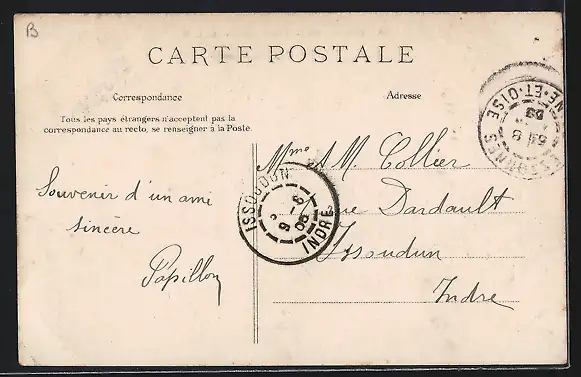 B
CARTE POSTALE
Correspondance
Adresse
Tous les pays étrangers n'acceptent pas la
correspondance au recto, se renseigner à la Poste.
Souvenir d'un ami
sincère
Papillon
Mme A.M. Collier
rue Dardault
Issoudun
Indre
ISSOUDUN
INDRE
NE-ET-OISE